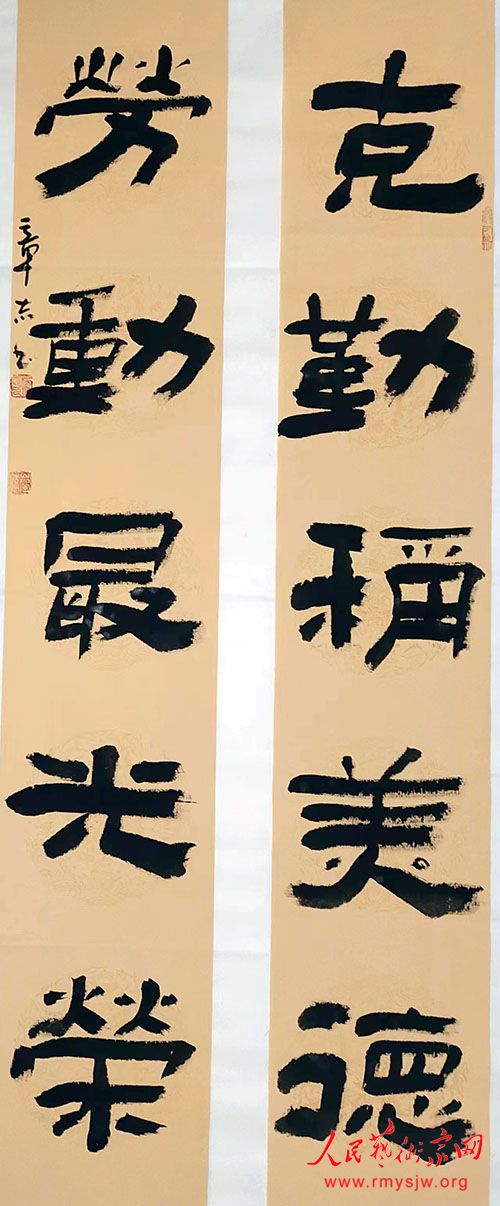 克勤稱美德
勞動最光榮
章志书
人民艺术家网
www.rmysjw.org